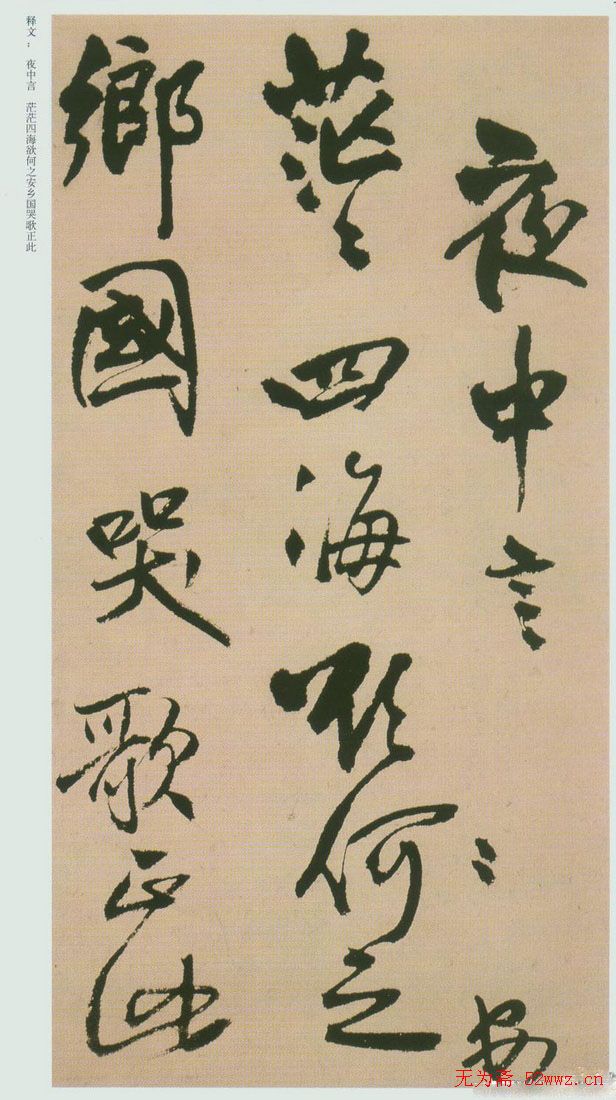 夜中言安
茫々四海欲何之
鄉國哭歌正此
释文： 夜中言 茫茫四海欲何之安乡国哭歌正此
无为斋 52wwz.cn